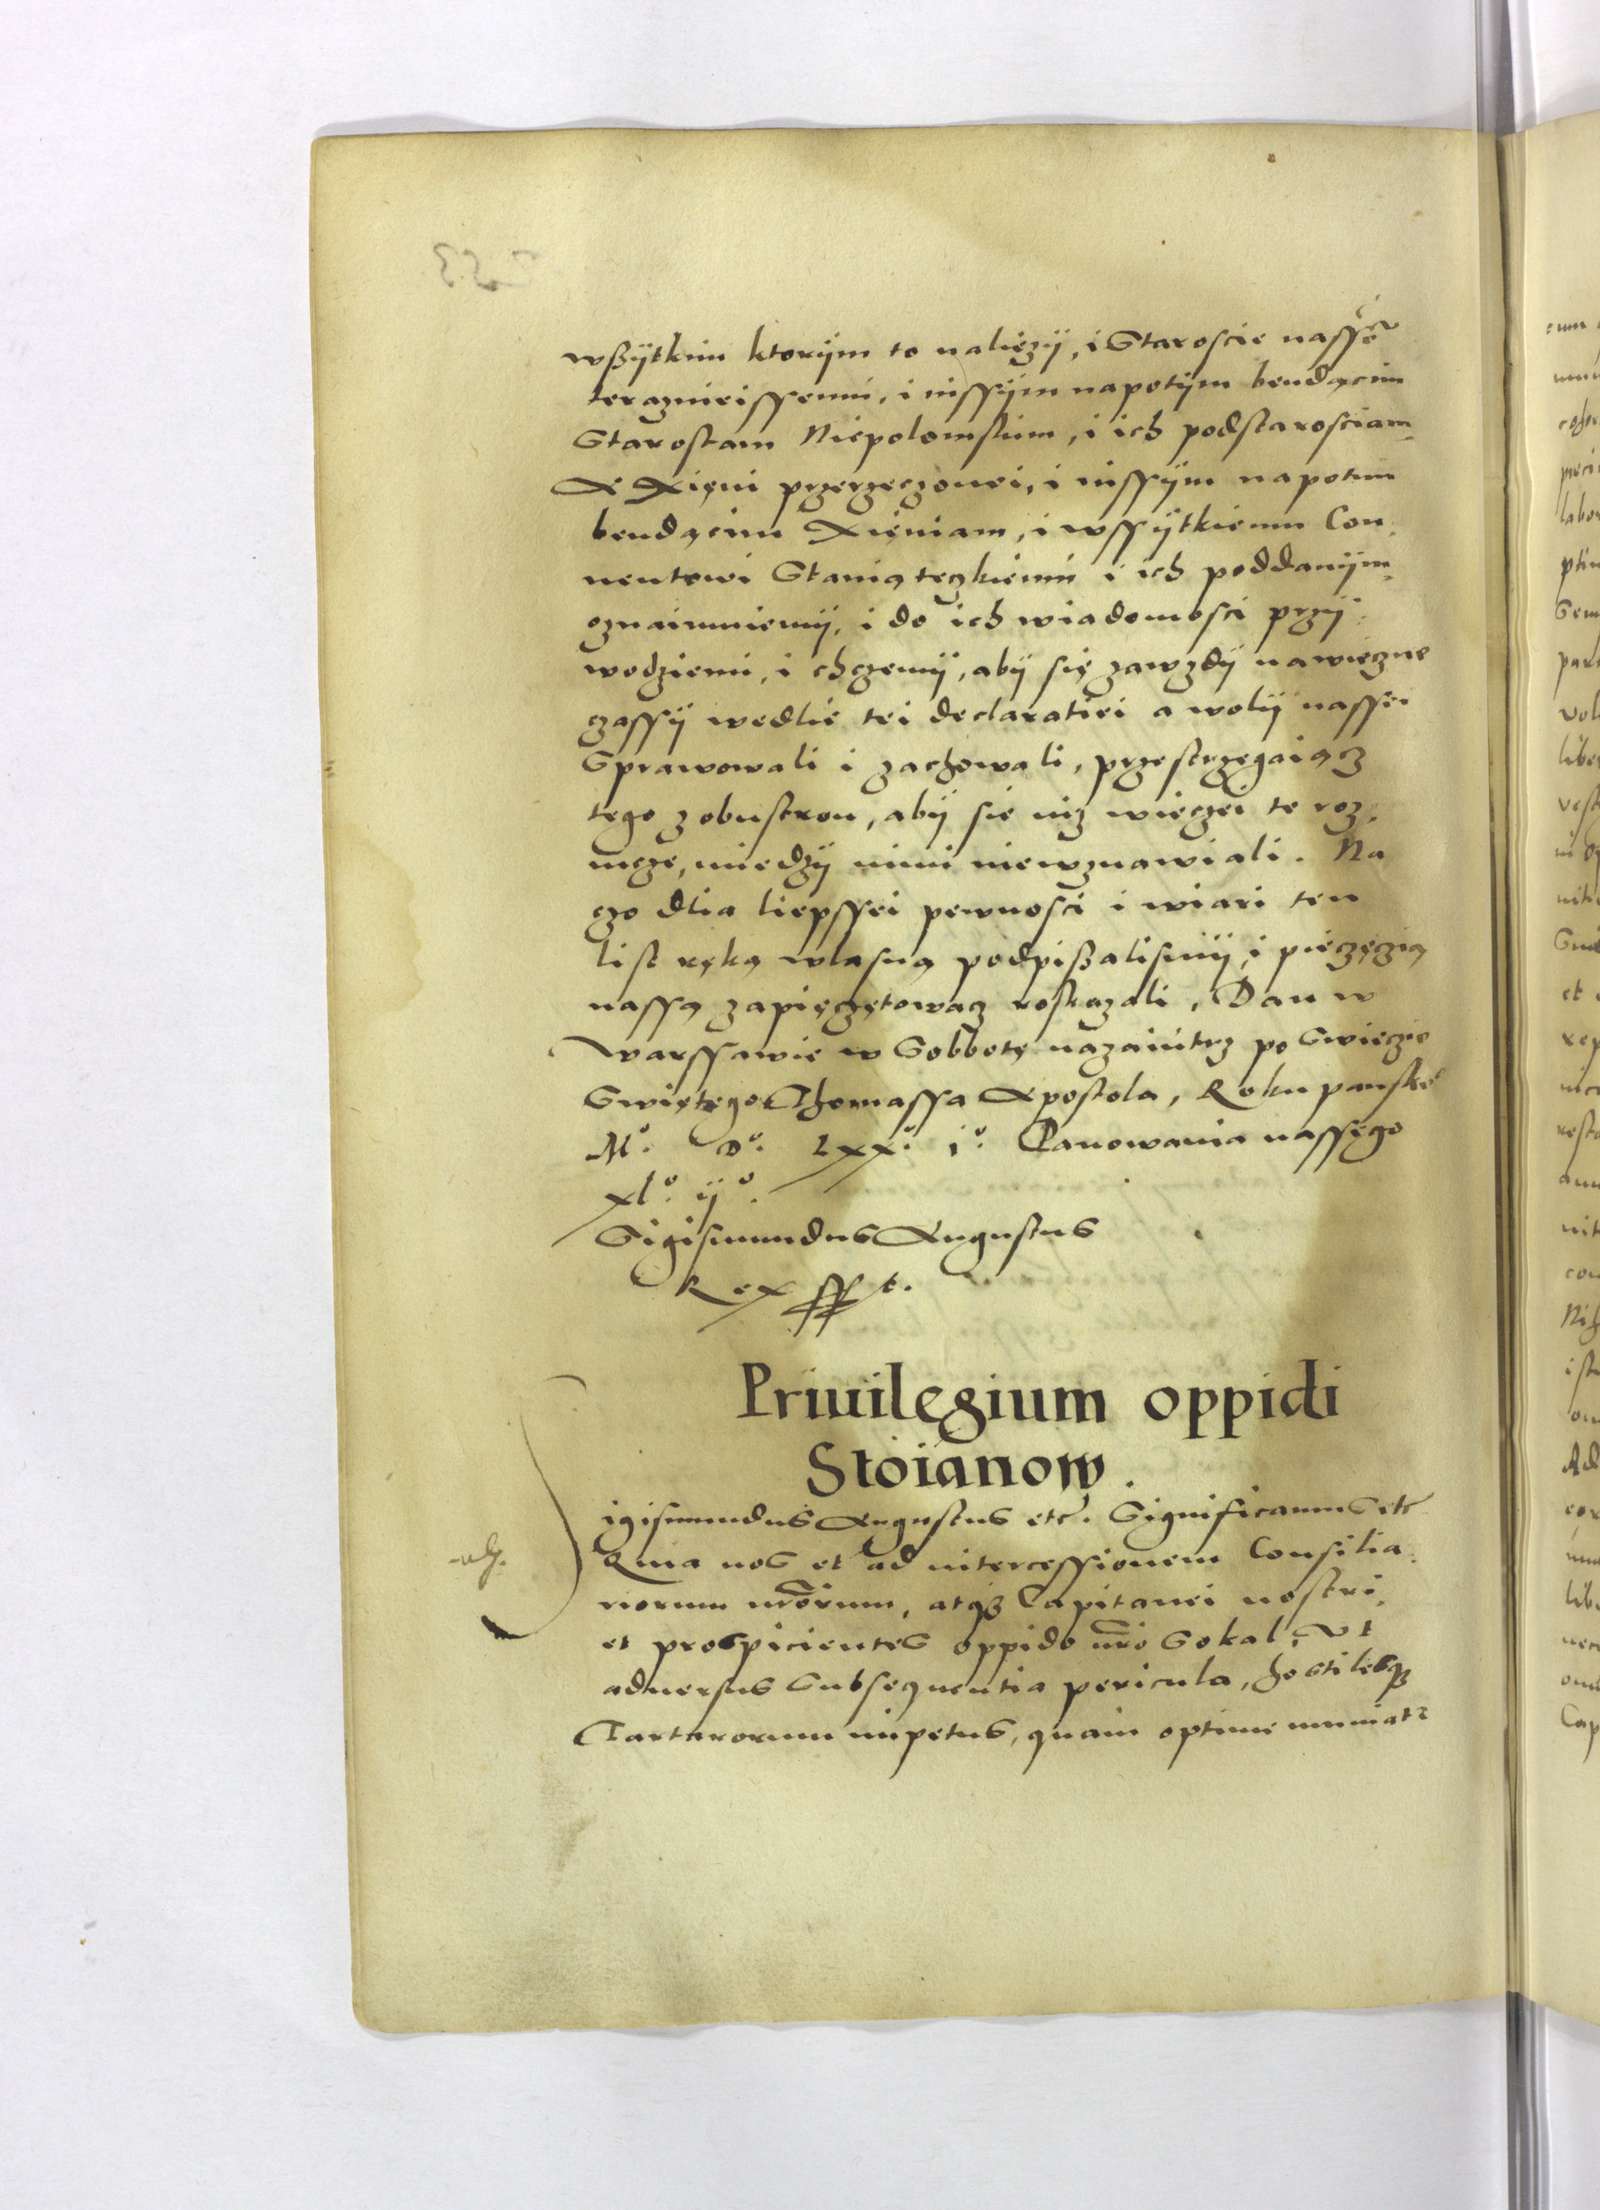 wßÿtkim ktorÿm to należÿ, i Staroscie nassemu
teraznieissemu, i inssÿm napotÿm bendącim
Starostam Niepolomskim, i ich podstarosciam
A Xięni przerzeczonei, i inssÿm napotim
bendącim Xięniam, i wssÿtkiemu Con,
uentowi Staniąteczkiemu i ich poddanÿm,
oznaimuiemÿ, i do ich wiadomosci przÿ,
wodziemi, i chczemÿ, abÿ się zawzdÿ nawieczne
czassÿ wedlie tei declaratiei a wolÿ nassei
Sprawowali i zachowali, przestrzegaiącz
tego z obustron, abÿ sie niz wieczei te roz,
nicze, miedzÿ nimi niewznawiali. Na
czo dlia liepssei pewnosci i wiari ten
list ręką wlasną podpißalismÿ, i pieczęczią
nassą zapięczętowacz roskazali, Dan w
Warssawie w Sobbotę nazaiutrz po Swięczie
Swiętego Thomassa Apostola, Roku panskieº
Mº. Dº. Lxxº. iº. Panowania nassego
xlº. ijº.
Sigismundus Augustus
Rex sst.
Priuilegium oppidi
Stoianow.
igismundus Augustus etc. Significamus etc
Quia nos et ad intercessionem Consilia,
riorum nr̃orum, atq3 Capitanei nostri,
et prospicientes oppido nr̃o Sokal, Vt
aduersus Subsequentia pericula, hostilesq3
Tartarorum impetus, quam optime muniat2